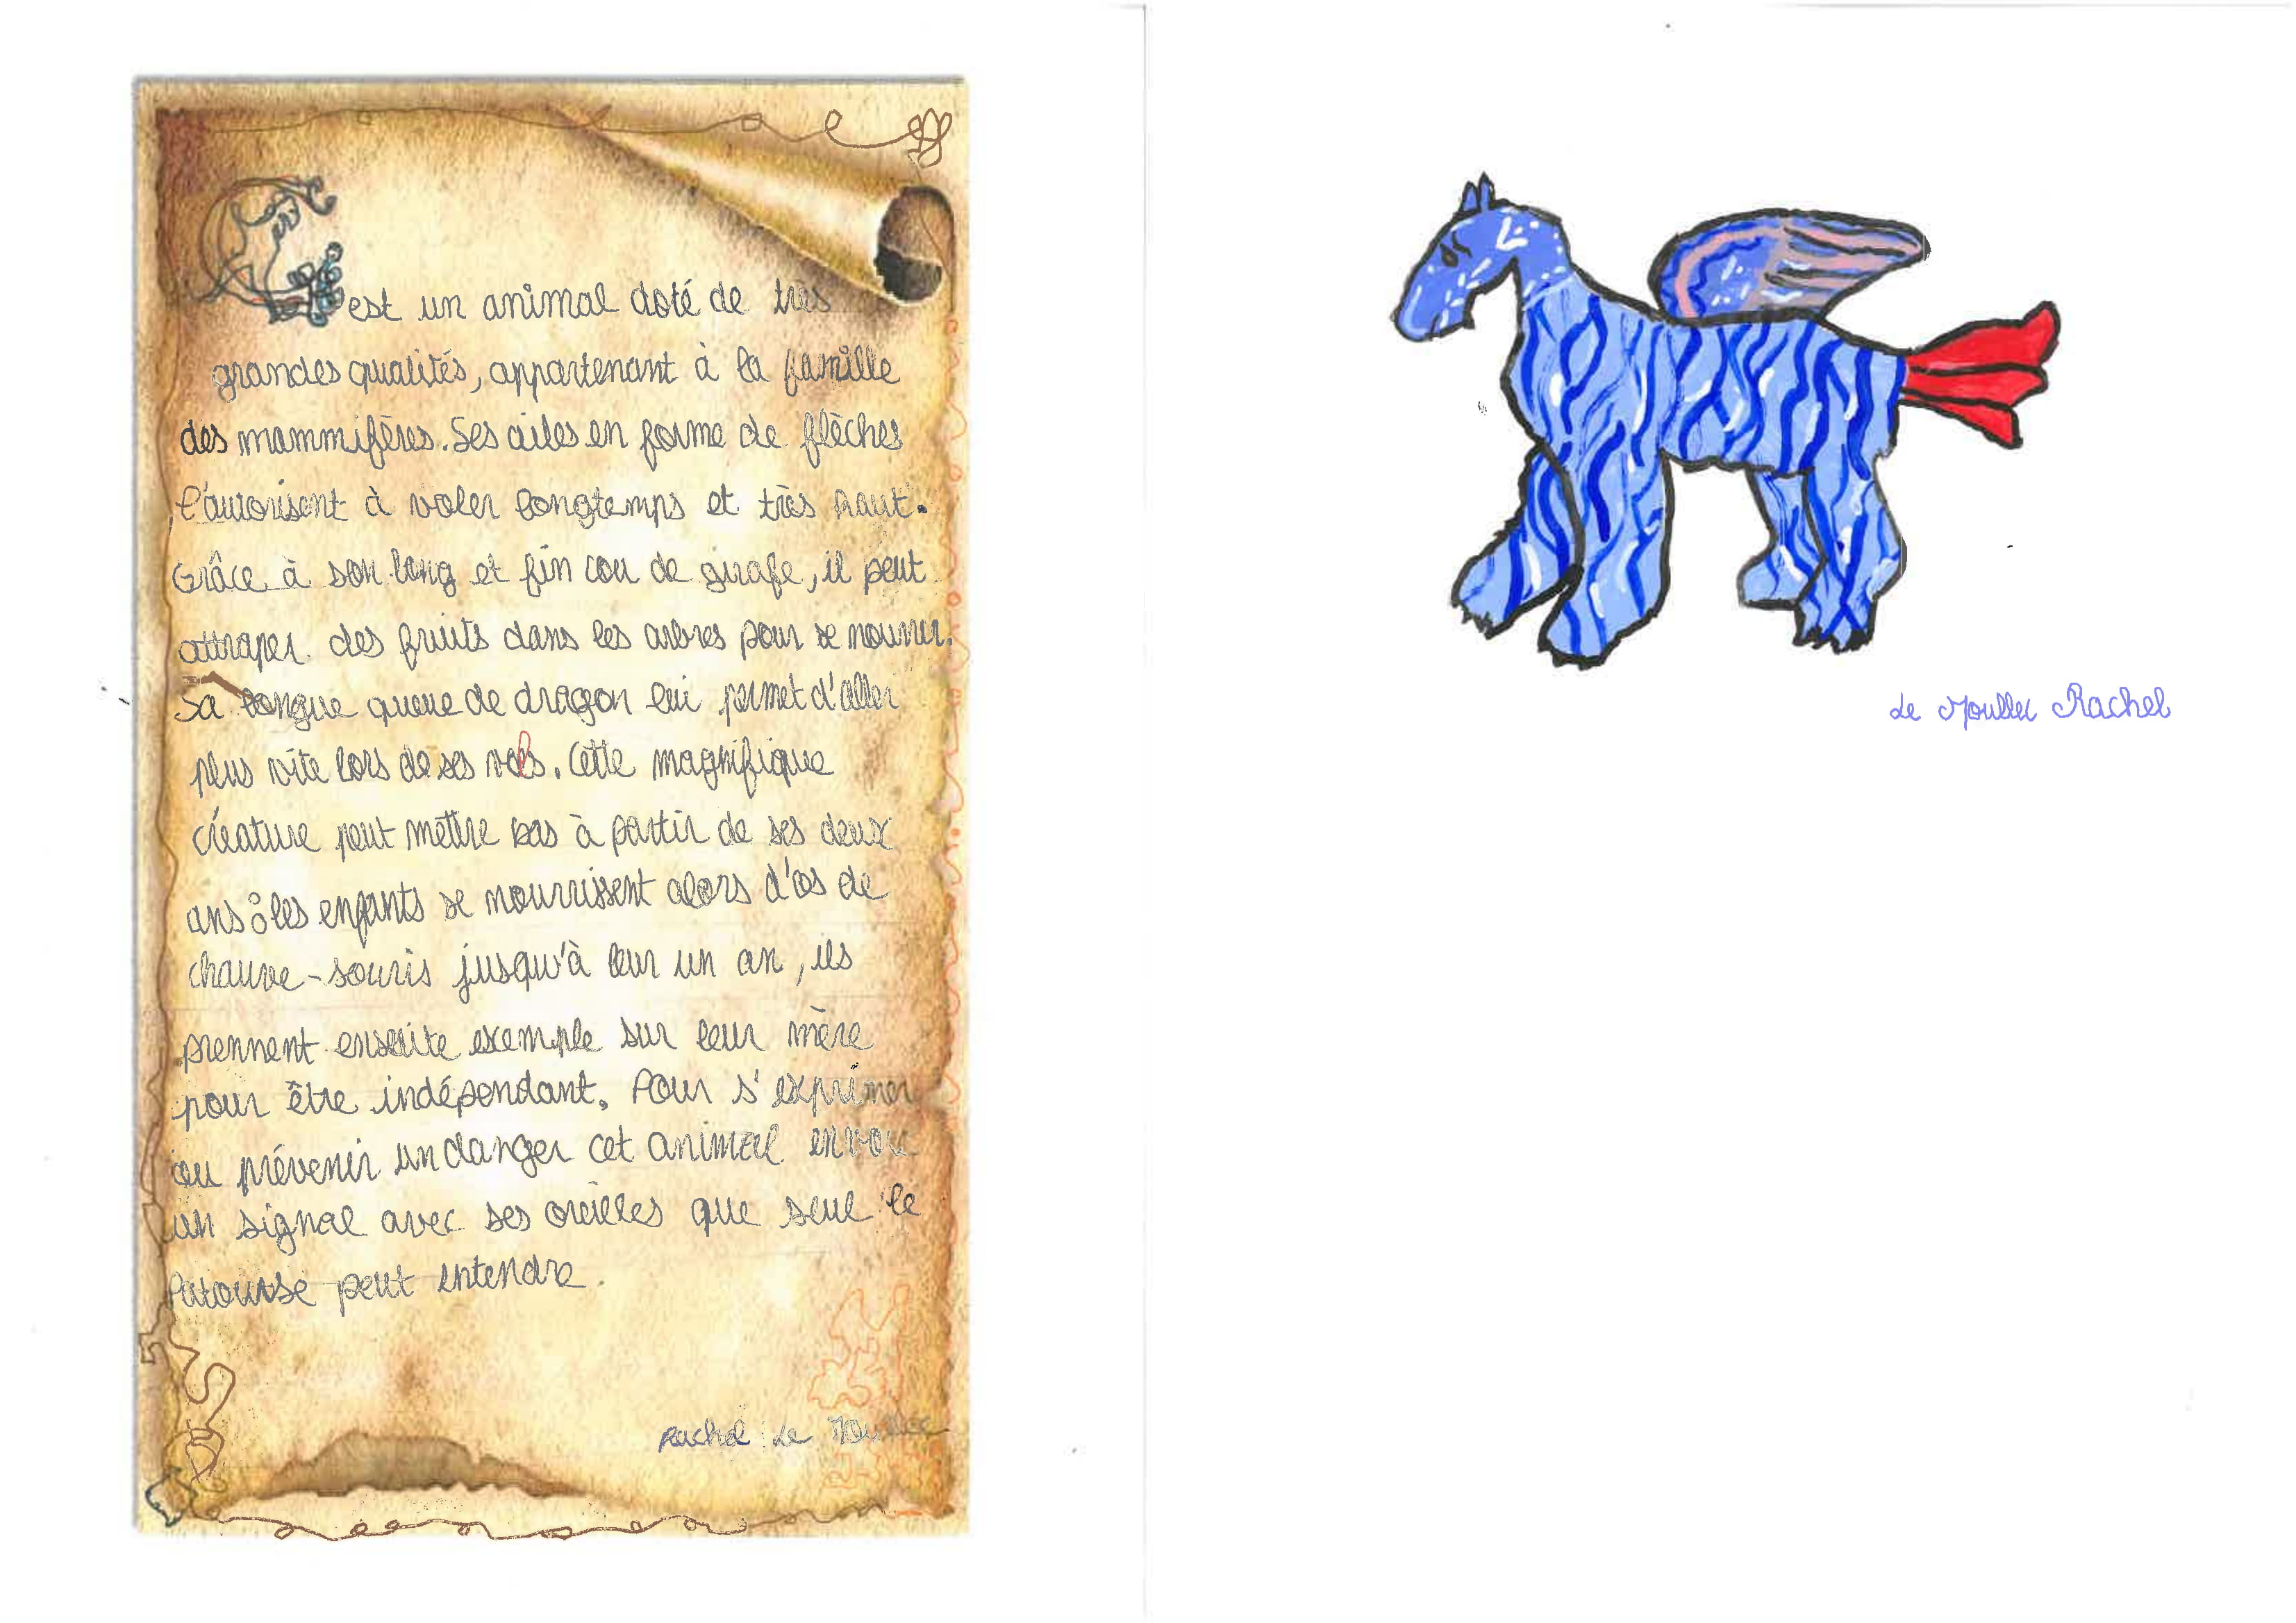 C'est un animal doté de très
grandes qualités, appartenant à la famille
des mammifères. Ses ailes en forme de flèches
l'autorisent à voler longtemps et très haut.
Grâce à son long et fin cou de girafe, il peut
attraper des fruits dans les arbres pour se nourrir.
Sa longue queue de dragon lui permet d'aller
plus vite lors de ses vols. Cette magnifique
créature peut mettre bas à partir de ses deux
ans : les enfants se nourrissent alors d'os de
chauve-souris jusqu'à leur un an, ils
prennent ensuite exemple sur leur mère
pour être indépendant. Pour s'exprimer
ou prévenir un danger cet animal envoie
un signal avec ses oreilles que seul le
peut entendre.
Rachel Le Moullec
Le Moullec Rachel